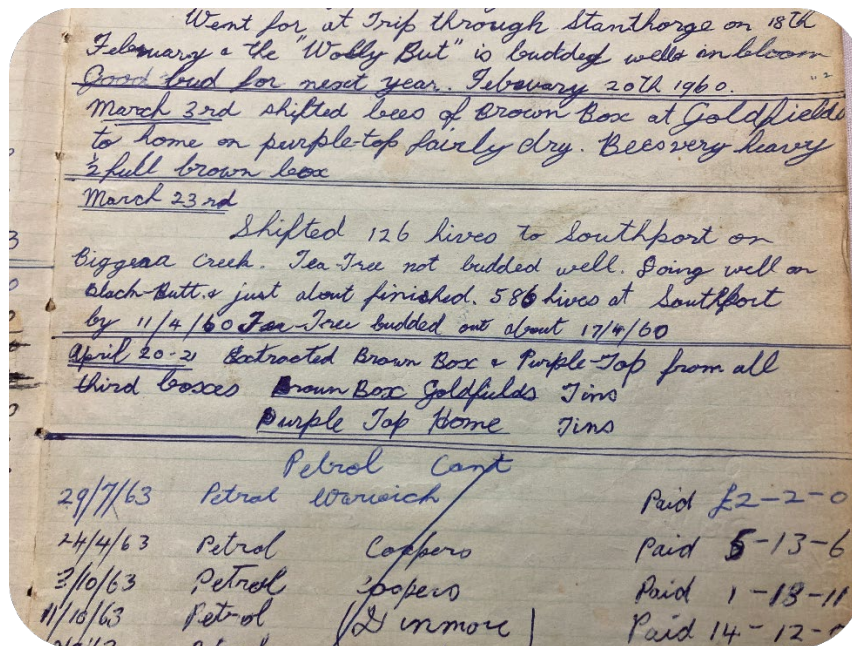 Went for at Trip through Stanthorge on 18th
February & the "Wolly But" is budded well in bloom
Good bud for next year. February 20th 1960.
March 3rd shifted bees of Brown Box at Goldfields
to home on purple-top fairly dry. Bees very heavy
½ full brown box
March 23rd
Shifted 126 hives to Southport on
Biggera Creek. Tea-Tree not budded well. Doing well on
Black-Butt. & just about finished. 586 hives at Southport
by 11/4/60 Tea-Tree budded out about 17/4/60
April 20-21 Extracted Brown Box & Purple-Top from all
third boxes Brown Box Goldfields Tins
Purple Top Home Tins
Petrol Cont
29/7/63 Petrol Warwick Paid £2-2-0
24/4/63 Petrol Coopers Paid 5-13-6
3/10/63 Petrol Coopers Paid 1-18-11
11/10/63 Petrol Dinmore Paid 14-12-